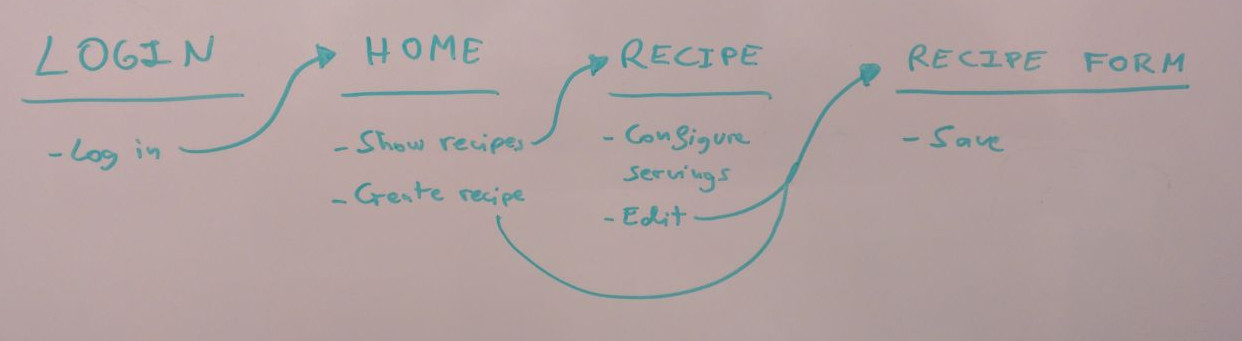 LOGIN
- Log in
HOME
- Show recipes
- Create recipe
RECIPE
- Configure
servings
- Edit
RECIPE FORM
- Save